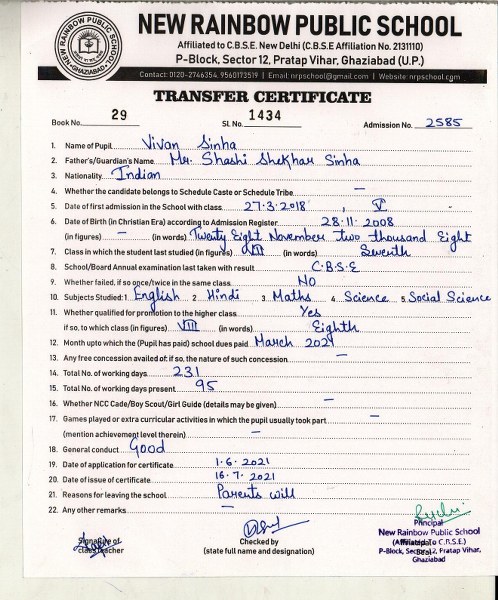 NEW RAINBOW PUBLIC SCHOOL
Affiliated to C.B.S.E. New Delhi (C.B.S.E Affiliation No. 2131110)
P-Block, Sector 12, Pratap Vihar, Ghaziabad (U.P.)
Contact: 0120-2746354, 9560173519 | Email: nrpschool@gmail.com | Website: nrpschool.com
NEW RAINBOW PUBLIC SCHOOL GHAZIABAD
TRANSFER CERTIFICATE
Book No. 29 Sl. No. 1434 Admission No. 2585
1. Name of Pupil Vivan Sinha
2. Father's/Guardian's Name Mr. Shashi Shekhar Sinha
3. Nationality Indian
4. Whether the candidate belongs to Schedule Caste or Schedule Tribe —
5. Date of first admission in the School with class 27.3.2018, V
6. Date of Birth (in Christian Era) according to Admission Register 28.11.2008
(in figures) — (in words) Twenty Eight November two thousand Eight
7. Class in which the student last studied (in figures) VII (in words) Seventh
8. School/Board Annual examination last taken with result C.B.S.E
9. Whether failed, if so once/twice in the same class No
10. Subjects Studied: 1. English 2. Hindi 3. Maths 4. Science 5. Social Science
11. Whether qualified for promotion to the higher class Yes
if so, to which class (in figures) VIII (in words) Eighth
12. Month upto which the (Pupil has paid) school dues paid March 2021
13. Any free concession availed of: if so, the nature of such concession —
14. Total No. of working days 231
15. Total No. of working days present 95
16. Whether NCC Cade/Boy Scout/Girl Guide (details may be given) —
17. Games played or extra curricular activities in which the pupil usually took part —
(mention achievement level therein) —
18. General conduct Good
19. Date of application for certificate 1.6.2021
20. Date of issue of certificate 16.7.2021
21. Reasons for leaving the school Parents will
22. Any other remarks —
Signature of
class teacher
Checked by
(state full name and designation)
Principal
New Rainbow Public School
(Affiliated To C.B.S.E.)
P-Block, Sector-12, Pratap Vihar,
Ghaziabad